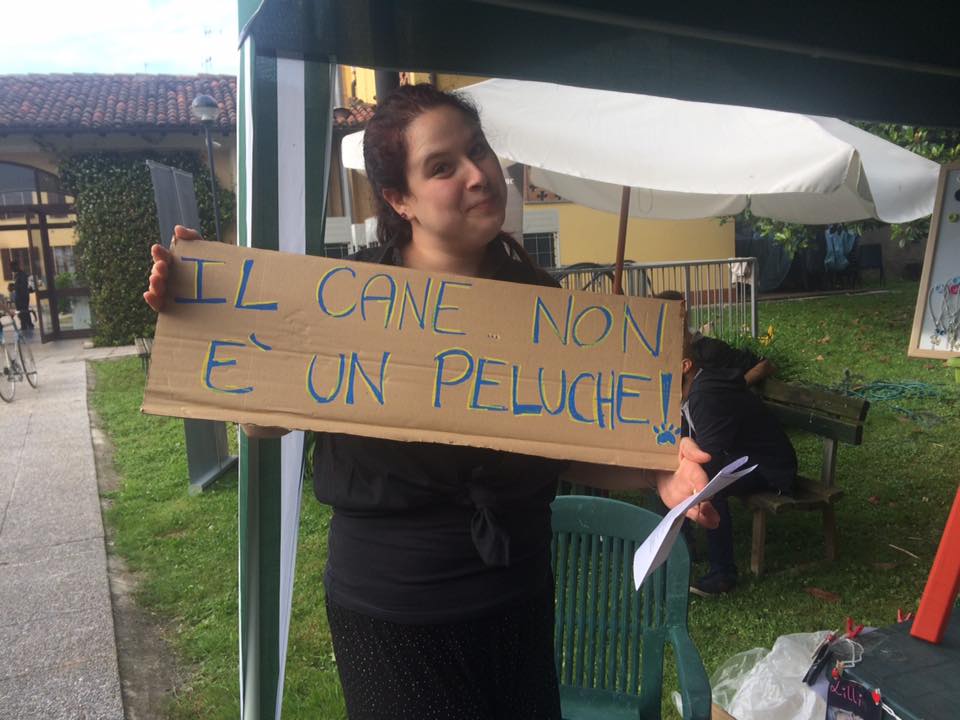 IL CANE NON
È UN PELUCHE!
Lilli